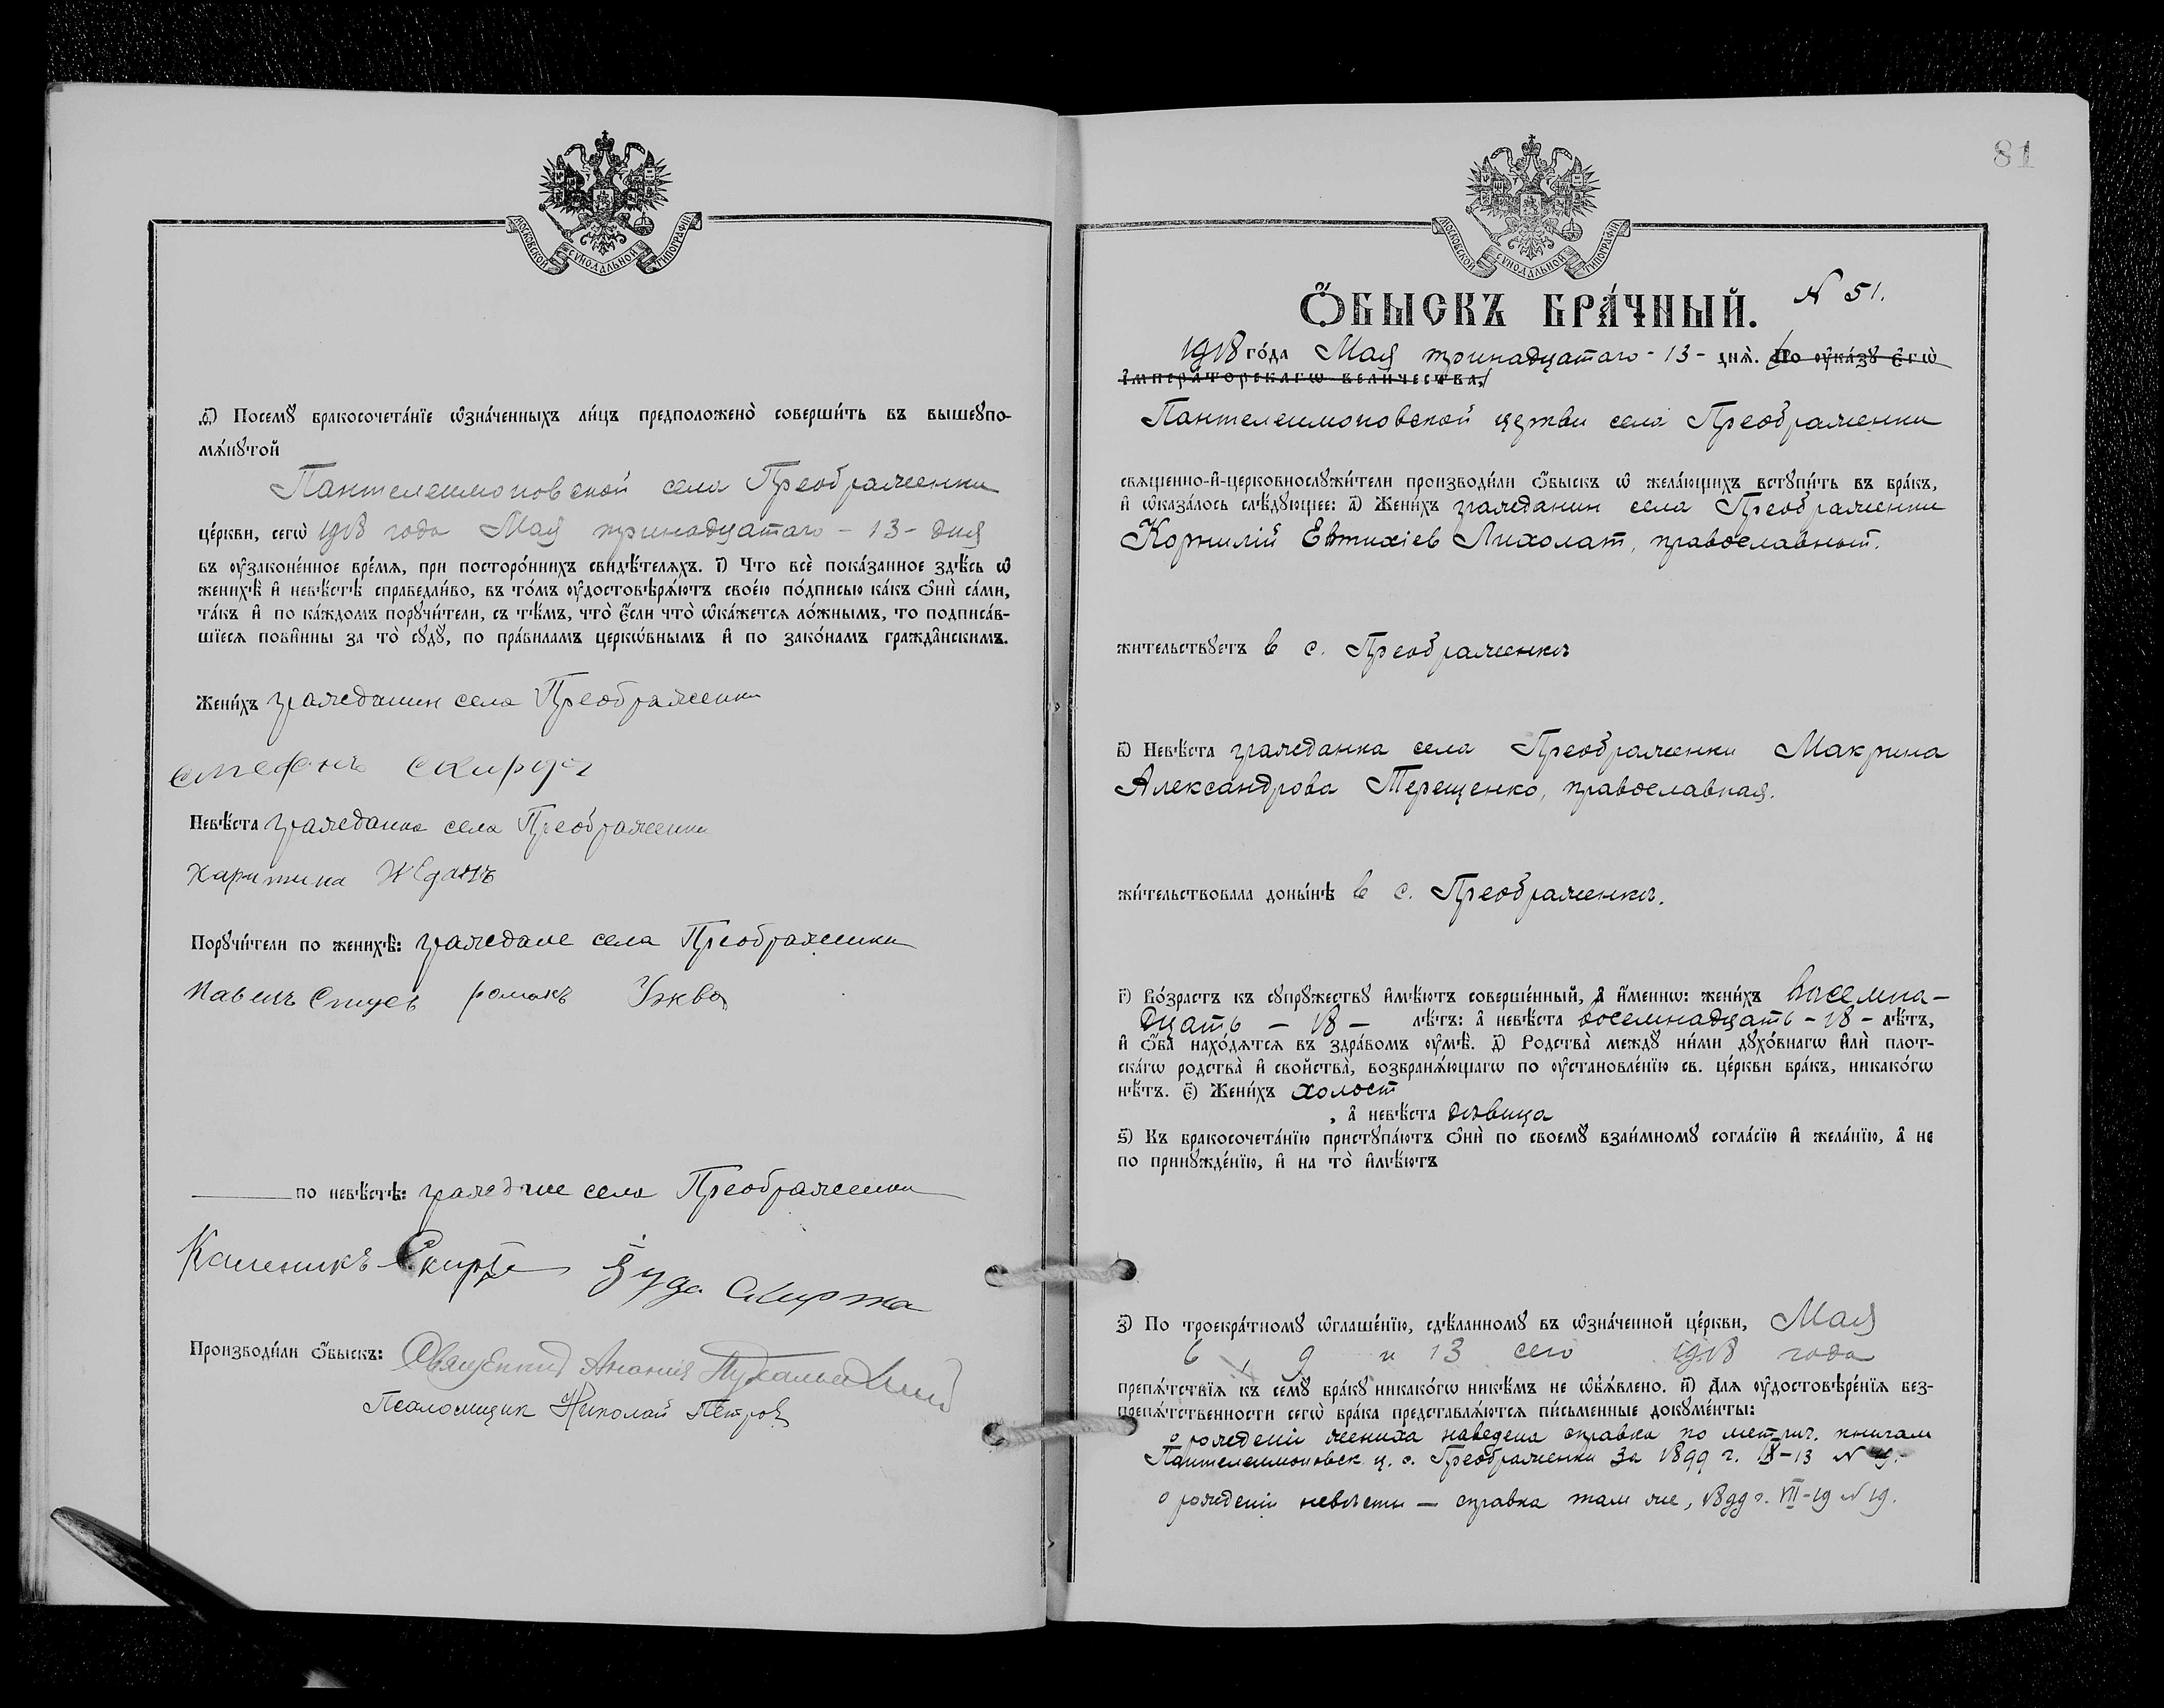 МОСКОВСКОЙ СѴНОДАЛЬНОЙ ТИПОГРАФІИ
д҃) Посемꙋ бракосочета́нїе ѡ҆зна́ченныхъ ли́цъ предположено̀ соверши́ть въ вышеꙋпо-
мѧ́нꙋтой
Пантелеимоновской села Преображенки
це́ркви, сегѡ̀ 1918 года Мая тринадцатаго - 13 - дня
въ ᲂу҆зако́ненное вре́мѧ, при посторо́ннихъ свидѣ́телѧхъ. і҃) Что̀ всѐ пока́занное здѣ́сь ѡ҆
женихѣ̀ и҆ невѣ́стѣ справедли́во, въ то́мъ ᲂу҆достовѣрѧ́ютъ свое́ю по́дписью ка́къ ѻ҆нѝ са́ми,
та́къ и҆ по ка́ждомъ порꙋчи́тели, съ тѣ́мъ, что̀ є҆́сли что̀ ѡ҆ка́жется ло́жнымъ, то подписа́в-
шїеся пови́нны за то̀ сꙋдꙋ̀, по пра́виламъ церко́внымъ и҆ по зако́намъ гражда́нскимъ.
Жени́хъ гражданин села Преображенки
стефанъ скирда
Невѣ́ста гражданка села Преображенки
харитина Жданъ
Порꙋчи́тели по женихѣ̀: граждане села Преображенки
Павелъ романъ
по невѣ́стѣ: граждане села Преображенки
Каленикъ Скирта
Производи́ли ѻ҆́быскъ: Священник Анания
Псаломщик Николай Петров
81
МОСКОВСКОЙ СѴНОДАЛЬНОЙ ТИПОГРАФІИ
Ѻ҆́БЫСКЪ БРА́ЧНЫЙ. N 51.
1918 го́да Мая тринадцатаго - 13 - днѧ̀. По ᲂу҆ка́зꙋ є҆гѡ̀
и҆мпера́торскагѡ вели́чества,
Пантелеимоновской церкви села Преображенки
свѧщенно-и҆-церковнослꙋжи́тели производи́ли ѻ҆́быскъ ѡ҆ жела́ющихъ встꙋпи́ть въ бра́къ,
и҆ ѡ҆каза́лось слѣ́дꙋющее: а҃) Жени́хъ гражданин села Преображенки
Корнилій Евтихіев Лихолат, православный.
жи́тельствꙋетъ в с. Преображенкѣ
в҃) Невѣ́ста гражданка села Преображенки Макрина
Александрова Терещенко, православная.
жи́тельствовала доны́нѣ в с. Преображенкѣ.
г҃) Во́зрастъ къ сꙋпрꙋ́жествꙋ и҆мѣ́ютъ соверше́нный, а҆ и҆́меннѡ: жени́хъ восемна-
дцать - 18 - лѣ́тъ: а҆ невѣ́ста восемнадцать - 18 - лѣ́тъ,
и҆ ѻ҆́ба нахо́дѧтсѧ въ здра́вомъ ᲂу҆мѣ̀. д҃) Родства̀ междꙋ ни́ми дꙋхо́внагѡ и҆лѝ плот-
ска́гѡ родства̀ и҆ сво́йства, возбранѧ́ющагѡ по ᲂу҆становле́нїю св. це́ркви бра́къ, никако́гѡ
нѣ́тъ. є҃) Жени́хъ холост
, а҆ невѣ́ста дѣвица
ѕ҃) Къ бракосочета́нїю пристꙋпа́ютъ ѻ҆нѝ по своемꙋ̀ взаи́мномꙋ согла́сїю и҆ жела́нїю, а҆ не
по принꙋжде́нїю, и҆ на то̀ и҆мѣ́ютъ
з҃) По троекра́тномꙋ ѡ҆глаше́нїю, сдѣ́ланномꙋ въ ѡ҆зна́ченной це́ркви, Мая
6, 9 и 13 сего 1918 года
препѧ́тствїѧ къ семꙋ̀ бра́кꙋ никако́гѡ никѣ́мъ не ѡ҆б̾ѧ́влено. и҃) Для ᲂу҆достовѣре́нїѧ без-
препѧ́тственности сегѡ̀ бра́ка представлѧ́ютсѧ пи́сьменные докꙋме́нты:
о рождении жениха наведена справка по метрич. книгам
Пантелеимоновск. ц. с. Преображенки за 1899 г. IX-13 N
о рождении невесты — справка там же, 1899 г. VII-19 N 19.